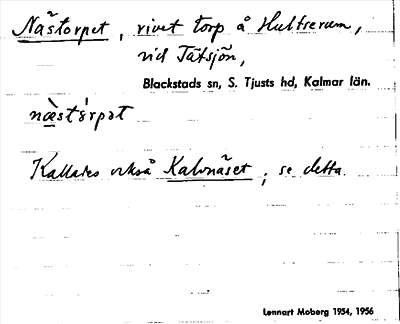 Nästorpet, rivet torp å Hultserum,
vid Tätsjön,
Blackstads sn, S. Tjusts hd, Kalmar län.
næ̀stɔ́rpət
Kallades också Kalvnäset; se detta.
Lennart Moberg 1954, 1956